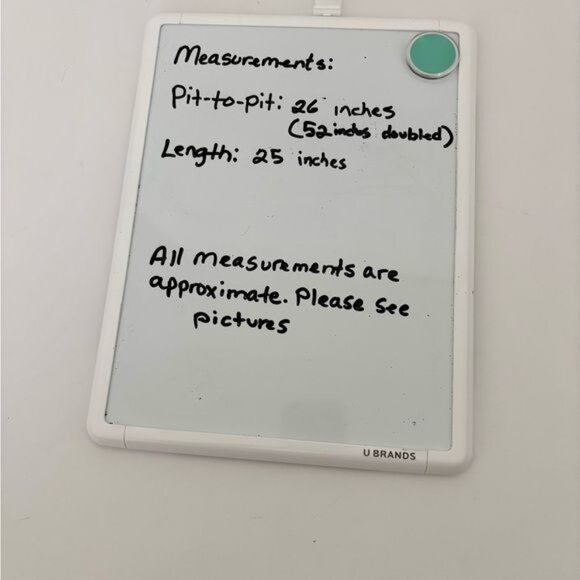 Measurements:
Pit-to-pit: 26 inches
(52 inches doubled)
Length: 25 inches
All measurements are
approximate. Please see
pictures
U BRANDS